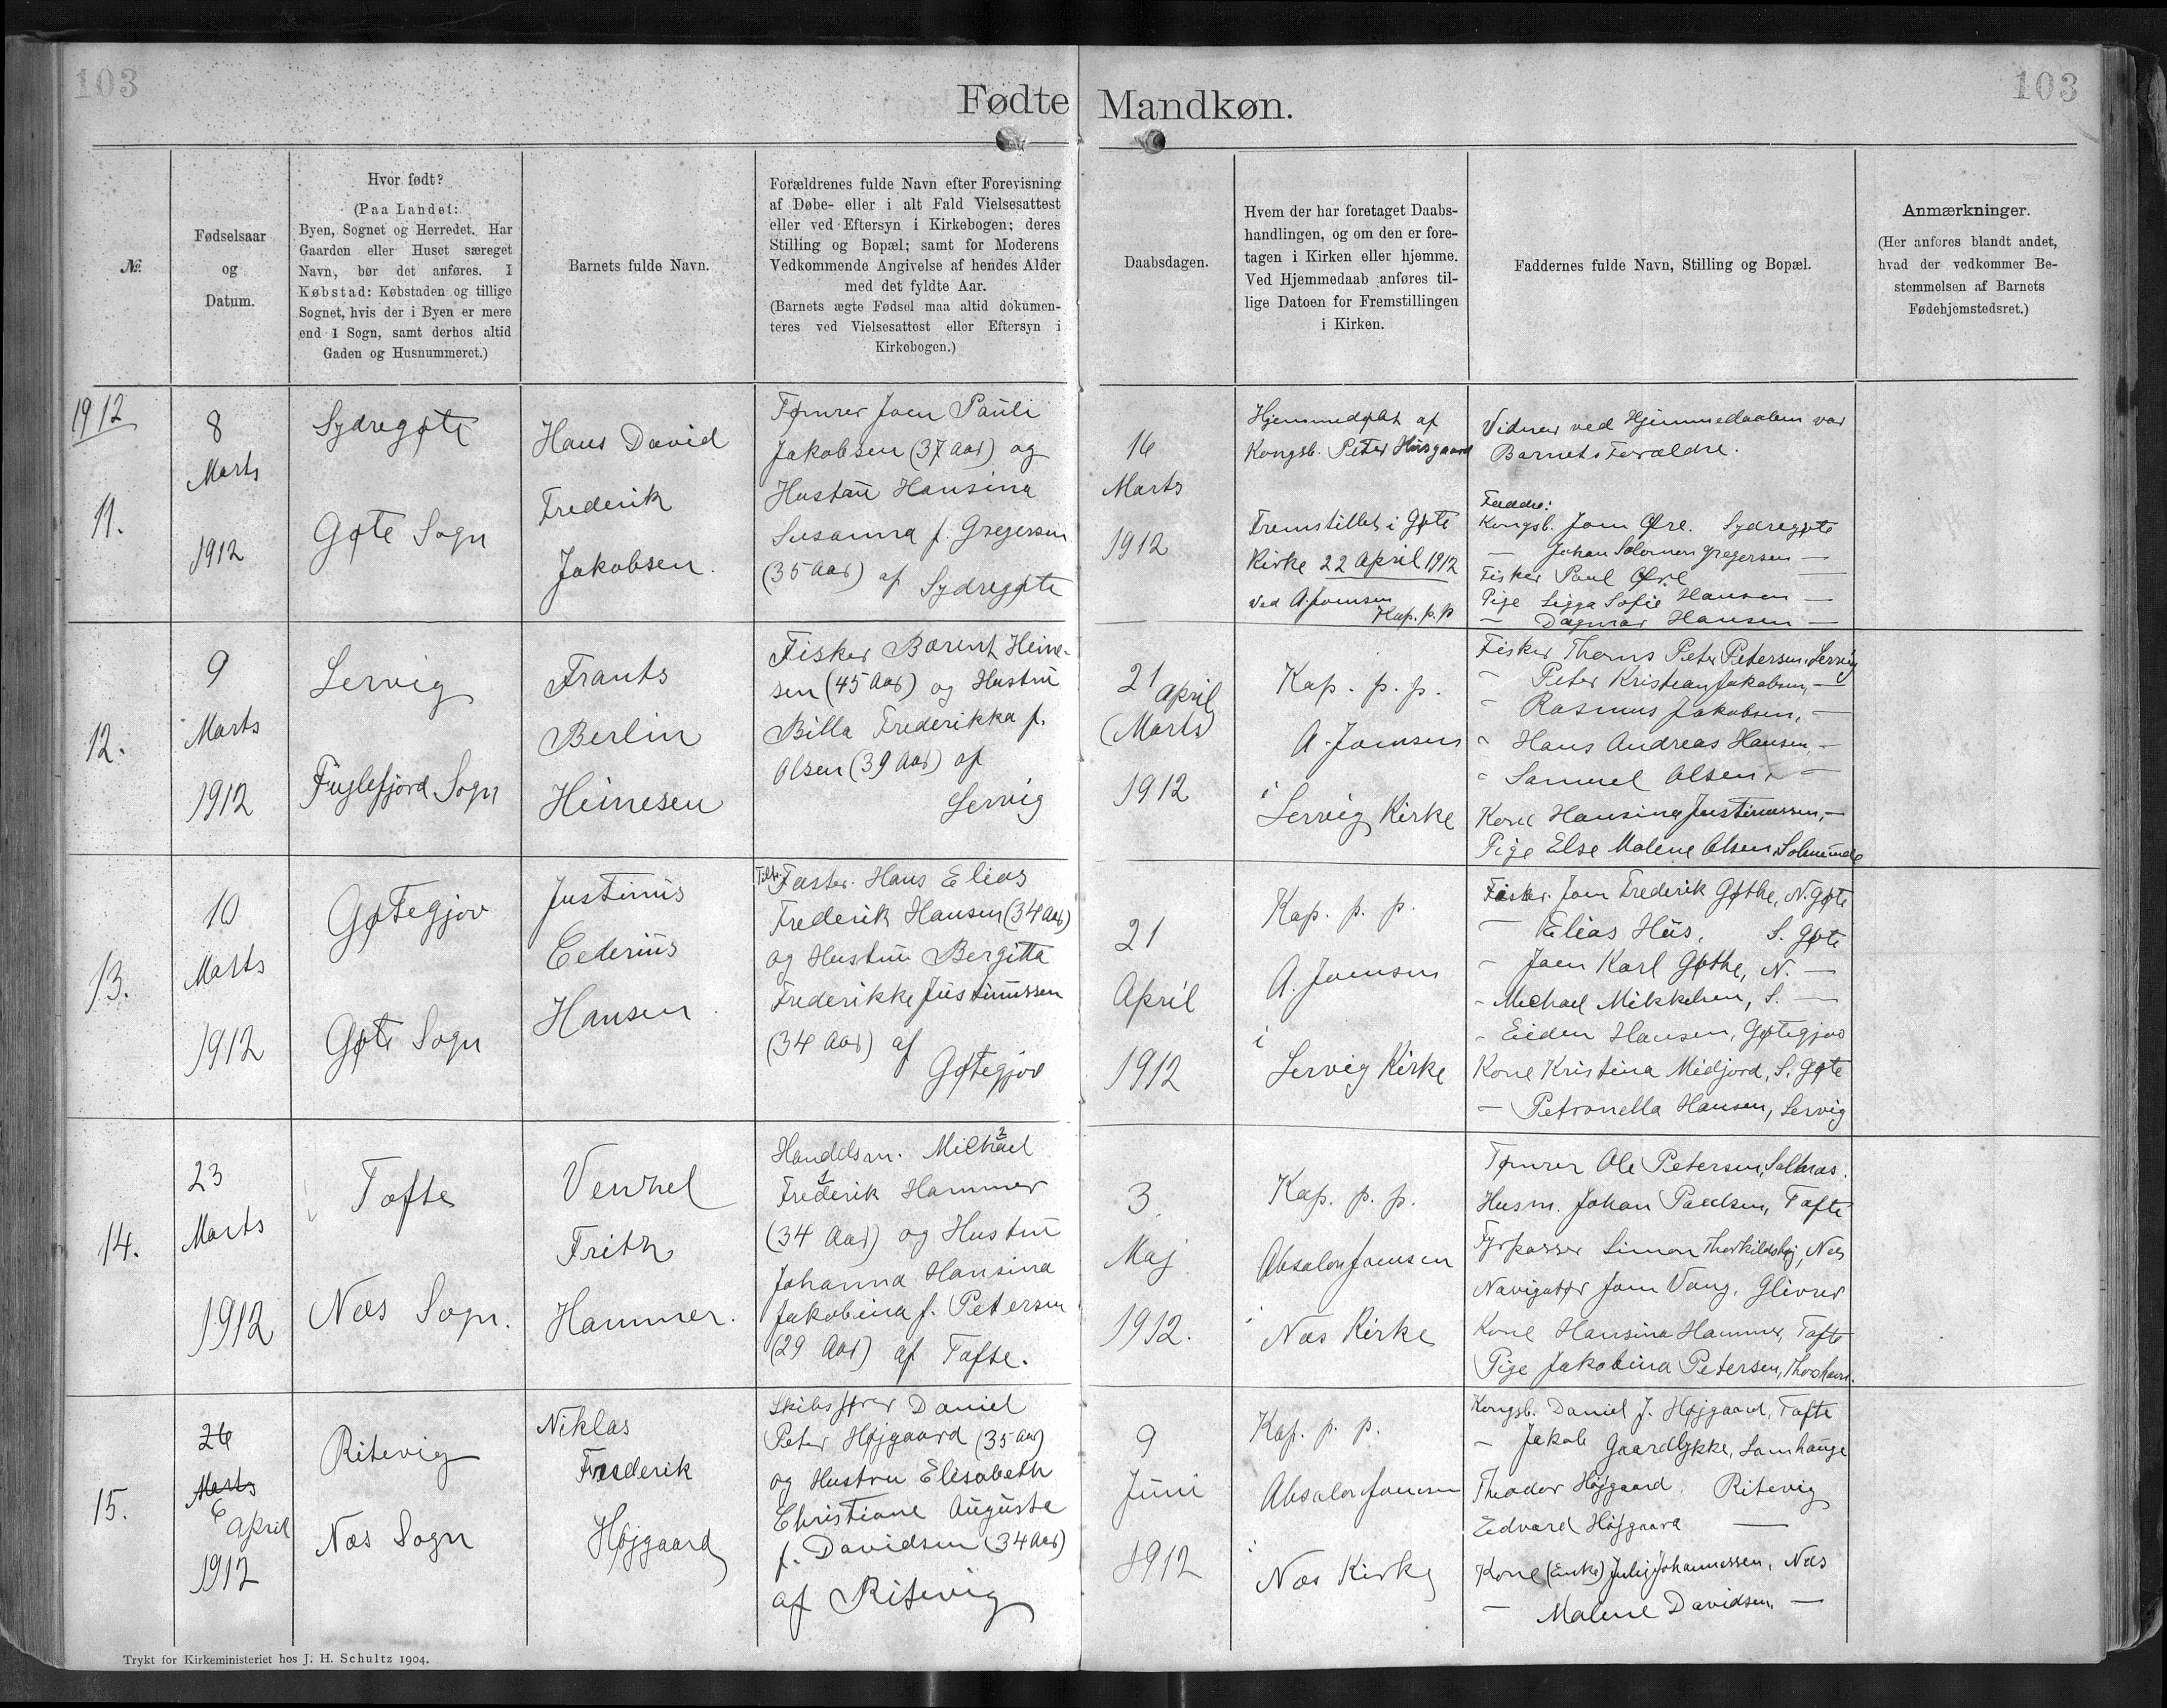 103
103
Fødte Mandkøn.
№.
Fødselsaar
og
Datum.
Hvor født?
(Paa Landet:
Byen, Sognet og Herredet. Har
Gaarden eller Huset særeget
Navn, bør det anføres. I
Købstad: Købstaden og tillige
Sognet, hvis der i Byen er mere
end 1 Sogn, samt derhos altid
Gaden og Husnummeret.)
Barnets fulde Navn.
Forældrenes fulde Navn efter Forevisning
af Døbe- eller i alt Fald Vielsesattest
eller ved Eftersyn i Kirkebogen; deres
Stilling og Bopæl; samt for Moderens
Vedkommende Angivelse af hendes Alder
med det fyldte Aar.
(Barnets ægte Fødsel maa altid dokumen-
teres ved Vielsesattest eller Eftersyn i
Kirkebogen.)
Daabsdagen.
Hvem der har foretaget Daabs-
handlingen, og om den er fore-
tagen i Kirken eller hjemme.
Ved Hjemmedaab anføres til-
lige Datoen for Fremstillingen
i Kirken.
Faddernes fulde Navn, Stilling og Bopæl.
Anmærkninger.
(Her anføres blandt andet,
hvad der vedkommer Be-
stemmelsen af Barnets
Fødehjemstedsret.)
1912
11.
8
Marts
1912
Sydregøte
Gøte Sogn
Hans David
Frederik
Jakobsen.
Tømrer Joen Pauli
Jakobsen (37 Aar) og
Hustru Hansina
Susanna f. Gregersen
(35 Aar) af Sydregøte
16
Marts
1912
Hjemmedøbt af
Kongsb. Peter
Fremstillet i Gøte
Kirke 22 April 1912
ved A. Joensen
Kap. p. p.
Vidner ved Hjemmedaaben var
Barnets Forældre.
Faddre:
Kongsb. Joen Øre. Sydregøte
— Johan Solomon Gregersen —
Fisker Paul Øre —
Pige Sigga Sofie Hansen —
— Dagmar Hansen —
12.
9
Marts
1912
Lervig
Fuglefjord Sogn
Frants
Berlin
Heinesen
Fisker Barent Heine-
sen (45 Aar) og Hustru
Billa Frederikka f.
Olsen (39 Aar) af
Lervig
21 April
(Marts)
1912
Kap. p. p.
A. Joensen
i
Lervig Kirke
Fisker Thoms Peter Petersen, Lervig
" Peter Kristian Jakobsen, —
" Rasmus Jakobsen, —
" Hans Andreas Hansen —
" Samuel Olsen, —
Kone Hansina Justinussen, —
Pige Else Malene Olsen,
13.
10
Marts
1912
Gøtegjov
Gøte Sogn
Justinus
Cederius
Hansen
Fæster. Hans Elias
Frederik Hansen (34 Aar)
og Hustru Bergitta
Frederikke Justinussen
(34 Aar) af
Gøtegjov
21
April
1912
Kap. p. p.
A. Joensen
i
Lervig Kirke
Fisker. Joen Frederik Gøthe, N. Gøte
— Elias Hús, S. Gøte
- Joen Karl Gøthe, N. —
- Michael Mikkelsen, S. —
- Eiden Hansen, Gøtegjov
Kone Kristina Midjord, S. Gøte
— Petronella Hansen, Lervig
14.
23
Marts
1912
Tofte
Næs Sogn.
Vennel
Frith
Hammer.
Handelsm. Michael 2
Frederik 1 Hammer
(34 Aar) og Hustru
Johanna Hansina
Jakobina f. Petersen
(29 Aar) af Tofte.
3.
Maj
1912.
Kap. p. p.
Absalon Joensen
i
Næs Kirke
Tømrer Ole Petersen, Saltnæs.
Husm. Johan Paulsen, Tofte
Fyrpasser Simon Thorkildshøj, Næs
Navigatør Joen Vang, Glivrer
Kone Hansina Hammer, Tofte
Pige Jakobina Petersen, Thorshavn.
15.
26
Marts
6 April
1912
Ritevig
Næs Sogn
Niklas
Frederik
Højgaard
Skibsfører Daniel
Peter Højgaard (35 Aar)
og Hustru Elisabeth
Christiane Auguste
f. Davidsen (34 Aar)
af Ritevig
9
Juni
1912
Kap. p. p.
Absalon Joensen
i
Næs Kirke
Kongsb. Daniel J. Højgaard, Tofte
— Jakob Gaardlykke, Lamhauge
Theodor Højgaard, Ritevig
Edvard Højgaard —
Kone (Enke) Julie Johannessen, Næs
— Malene Davidsen, —
Trykt for Kirkeministeriet hos J. H. Schultz 1904.